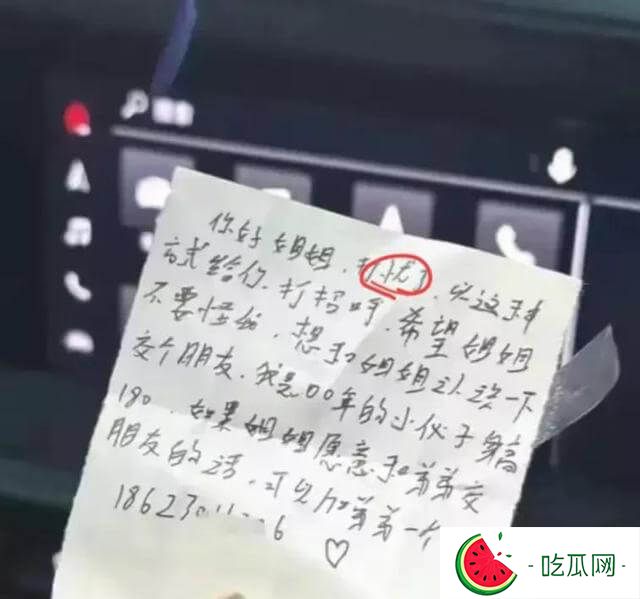 你好姐姐,打扰了,以这种
方式给你打招呼,希望姐姐
不要怪,想和姐姐认识一下
交个朋友,我是00年的小伙子身高
180,如果姐姐愿意和弟弟交
朋友的话,可以加弟弟一个
18623
吃瓜网